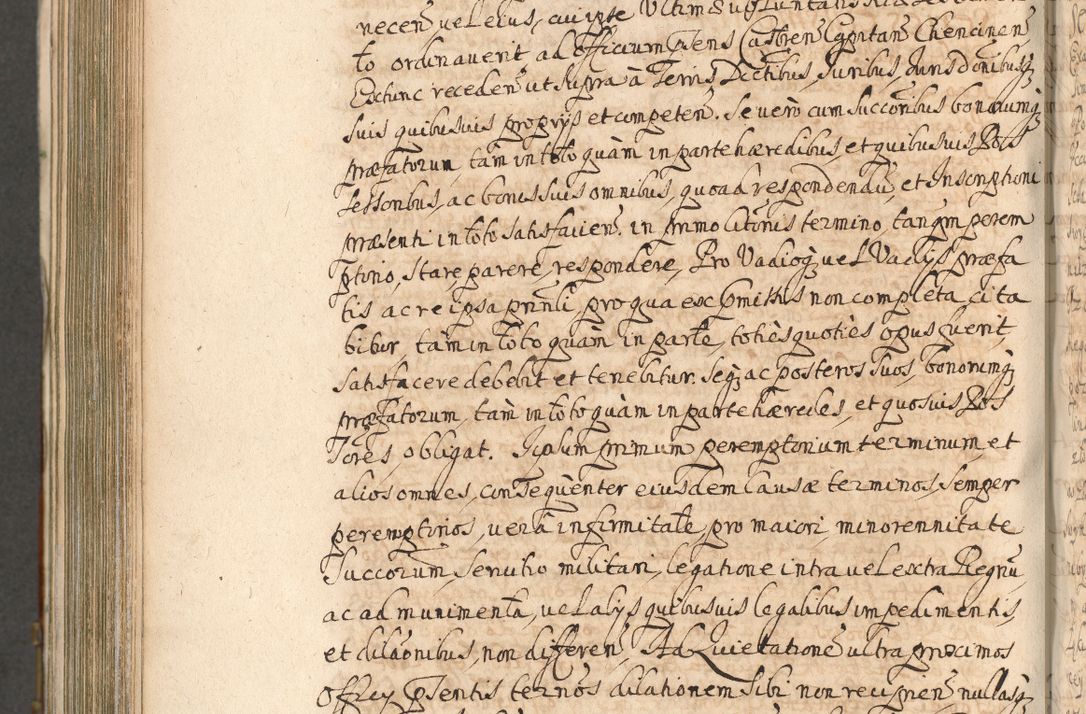 recen̄ vel eius, cui ipse Ultimā voluntatis
to ordinaverit ad Officium Psens Castren Cpitan̄ Chencinen̄
Extunc receden̄ ut supra à Terris Dictibus, Juribus, Jurisdōnibusq
suis quibusuis proprys et competen̄. Se verò cum succōribus bonorumq
præfatorum, tam in toto quàm in parte hæredibus, et quibusuis Pos
sessoribus, ac bonis suis omnibus, quoad respondendū, et Inscriptioni
præsenti in toto satisfacien̄, in primo Citōnis termino, tanqm perem
ptorio, stare, parere, respondere, Pro Vadioq vel Vadys præfa
tis ac re ipsa prin̄li, pro qua ex Pmissis non completa cita
bitur, tàm in toto quàm in parte, toties quoties opus fuerit,
satisfacere debebit et tenebitur. Seq ac posteros suos, bonorumq
præfatorum, tàm in toto quàm in parte hæredes, et quosuis Pos
sores, obligat. Ipsum primum peremptorium terminum, et
alios omnes, consequenter eiusdem Causæ terminos, semper
peremptorios, vera infirmitate, pro maiori, minorennitate
succorum, servitio militari, legatione intra vel extra Regnū,
ac ad munimenta, vel alys quibusuis legalibus impedimentis,
et dilāonibus, non differen̄, Ad Quietationē ultra proximos
Offrey Psentis ternōs dilationem sibi non recipien̄ nullasq